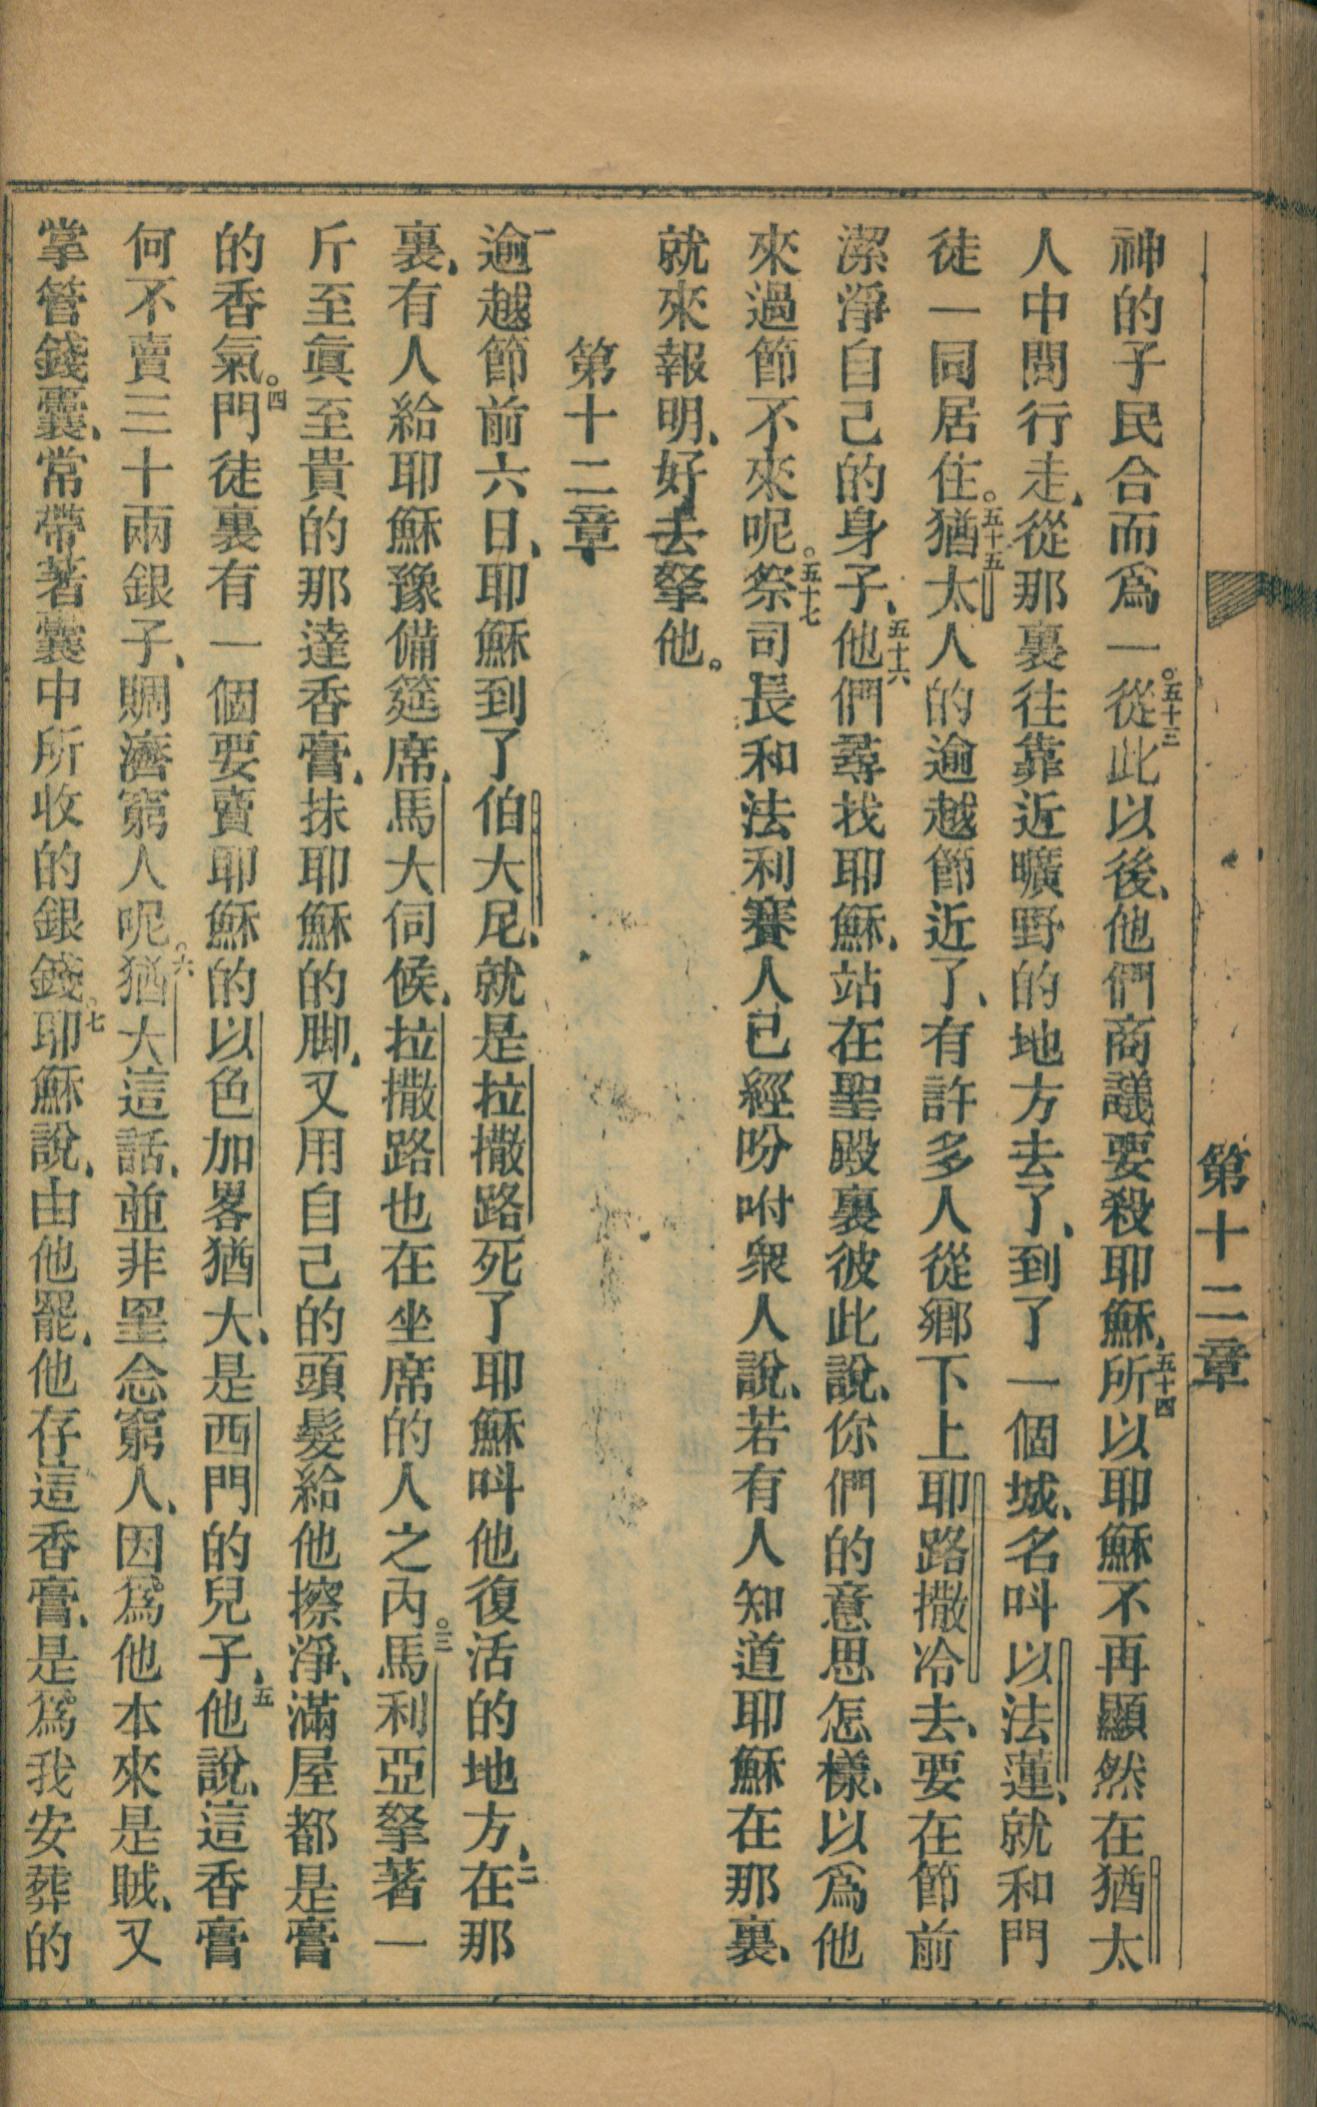 第十二章
神的子民合而爲一。五十三從此以後、他們商議要殺耶穌、五十四所以耶穌不再顯然在猶太
人中間行走、從那裏往靠近曠野的地方去了、到了一個城、名呌以法蓮、就和門
徒一同居住。五十五猶太人的逾越節近了、有許多人從鄉下上耶路撒冷去、要在節前
潔淨自己的身子、五十六他們尋找耶穌、站在聖殿裏彼此說、你們的意思怎樣、以爲他
來過節不來呢。五十七祭司長和法利賽人已經吩咐衆人說、若有人知道耶穌在那裏、
就來報明、好去拏他。
第十二章
一逾越節前六日、耶穌到了伯大尼、就是拉撒路死了耶穌呌他復活的地方、二在那
裏、有人給耶穌豫備筵席、馬大伺候、拉撒路也在坐席的人之內。三馬利亞拏著一
斤至眞至貴的那達香膏、抹耶穌的脚、又用自己的頭髮給他擦淨、滿屋都是膏
的香氣。四門徒裏有一個要賣耶穌的以色加畧猶大、是西門的兒子、五他說、這香膏
何不賣三十兩銀子、賙濟窮人呢。六猶大這話、並非罣念窮人、因爲他本來是賊、又
掌管錢囊、常帶著囊中所收的銀錢。七耶穌說、由他罷、他存這香膏、是爲我安葬的